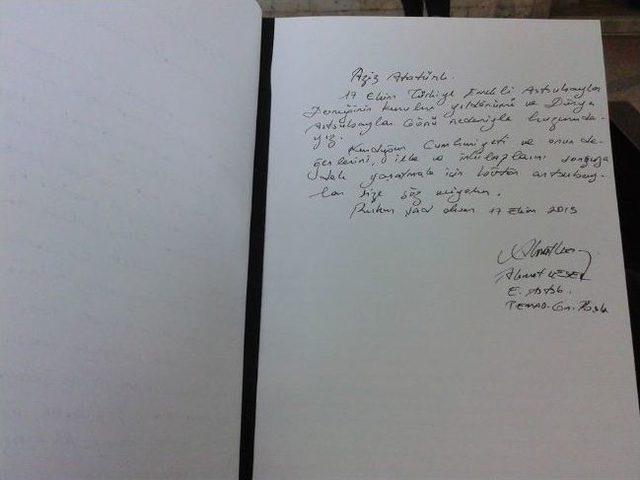 Aziz Atatürk.
17 Ekim Türkiye Emekli Astsubaylar
Derneğinin kuruluş yıldönümü ve Dünya
Astsubaylar Günü nedeniyle huzurunda-
yız.
Kurduğun Cumhuriyeti ve onun de-
ğerlerini, ilke ve inkılaplarını sonsuza
dek yaşatmak için bütün astsubay-
lar size söz veriyoruz.
Ruhun şad olsun 17 Ekim 2013
Ahmet KESER
E. Astsb.
TEMAD Gn. Bşk